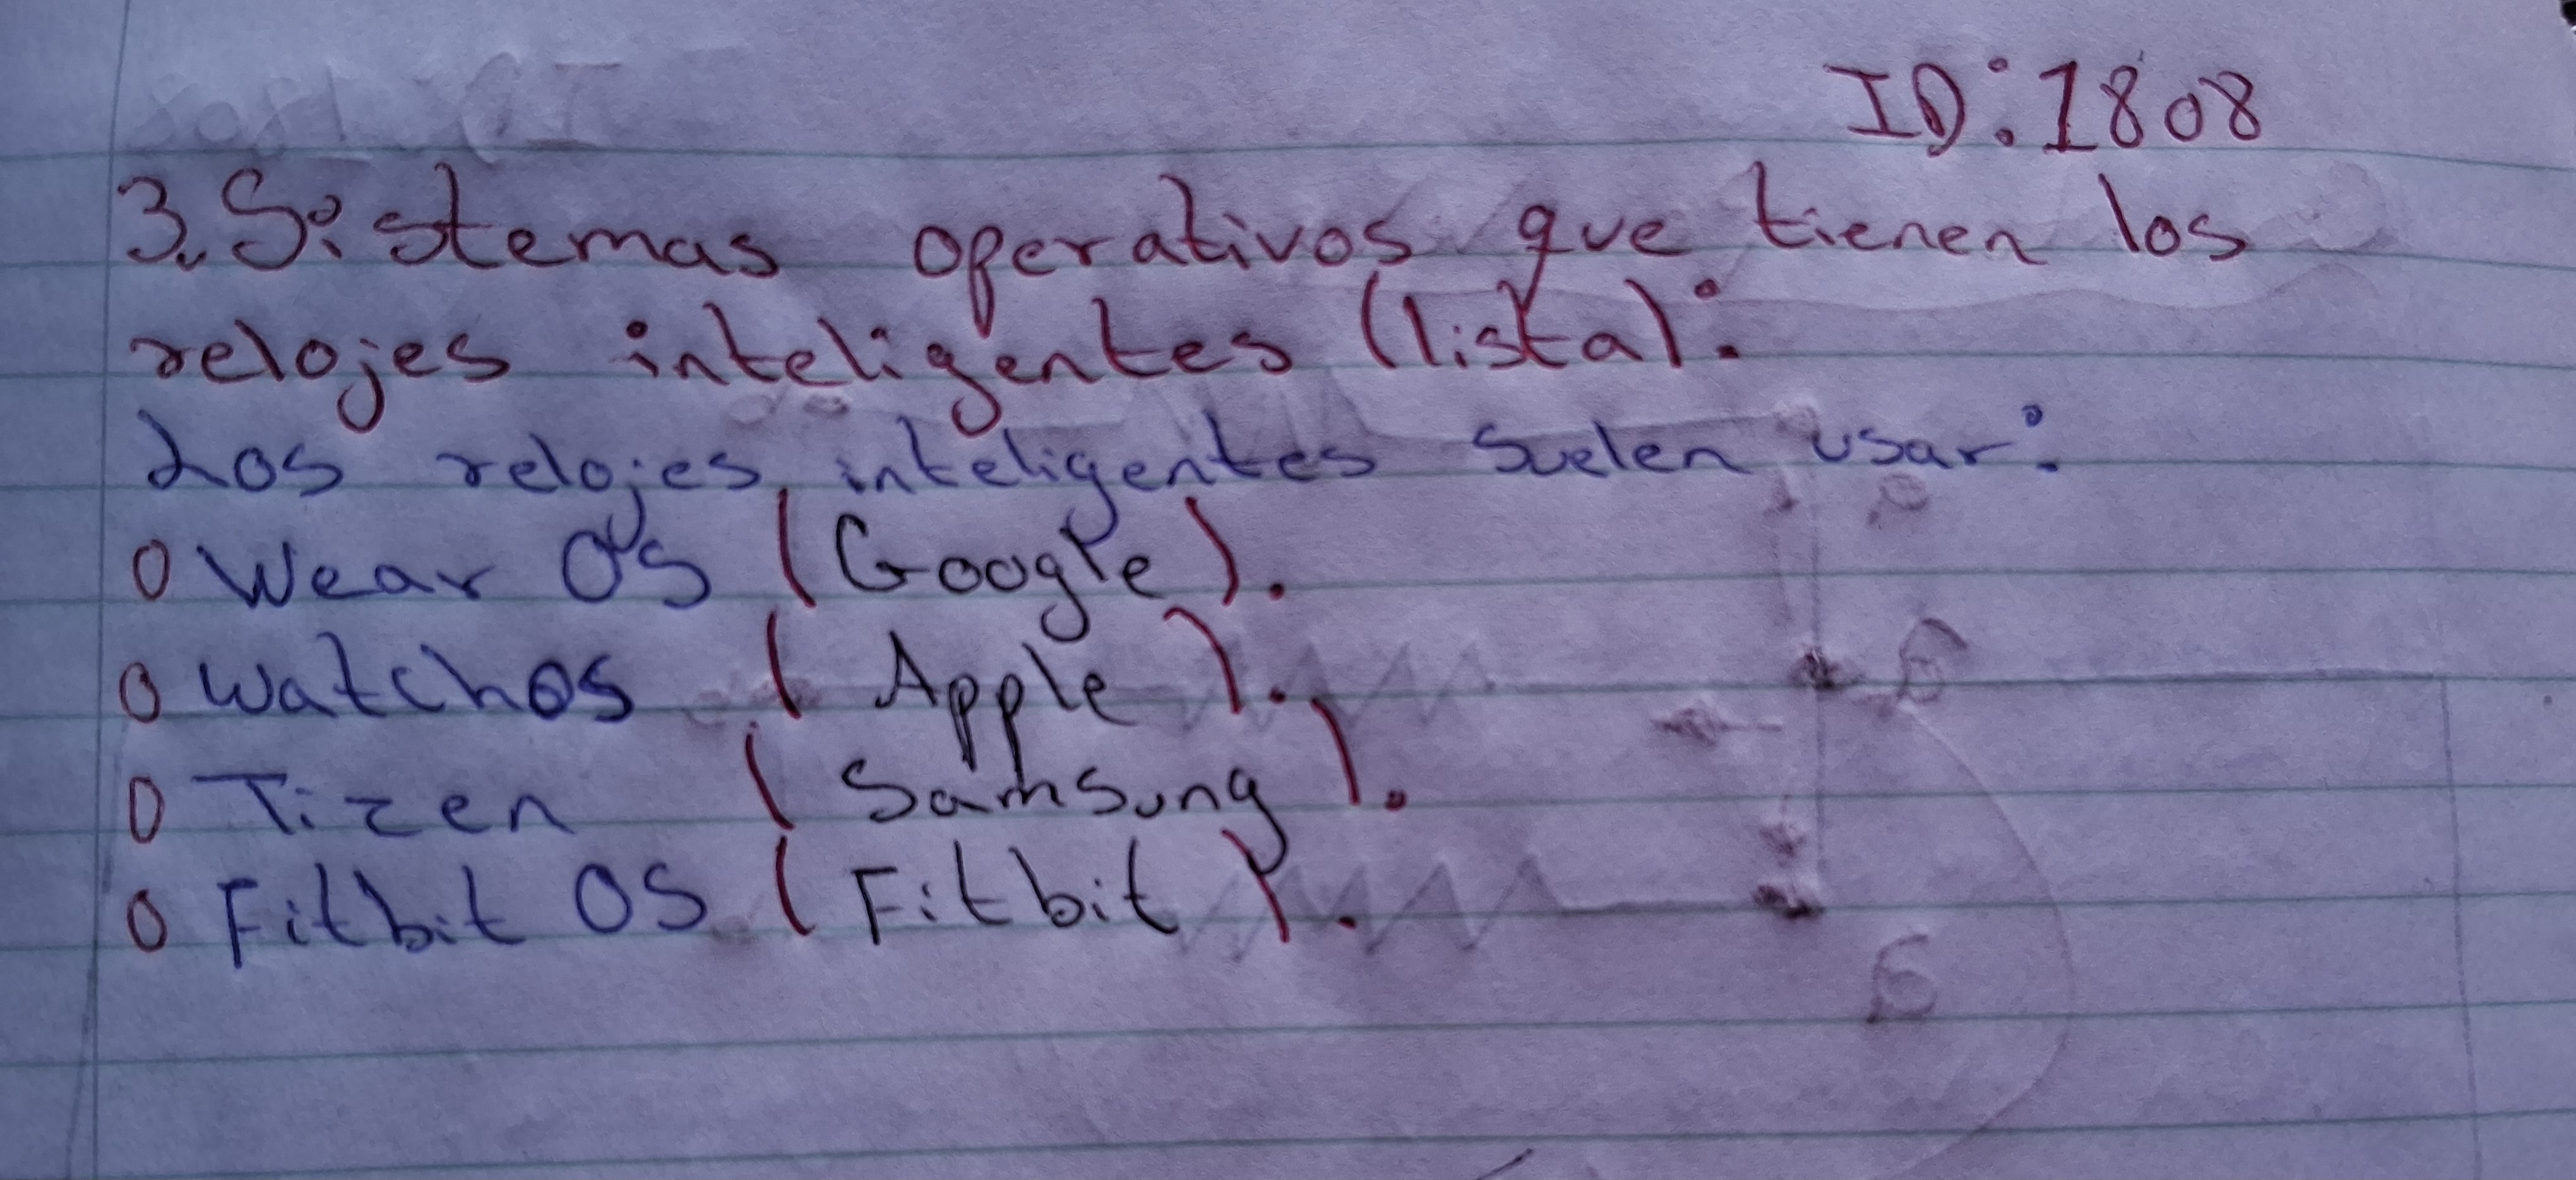 ID:1808
3. Sistemas operativos que tienen los
relojes inteligentes (lista):
Los relojes inteligentes suelen usar:
O Wear OS (Google).
O watchOS (Apple).
O Tizen (Samsung).
O Fitbit OS (Fitbit).